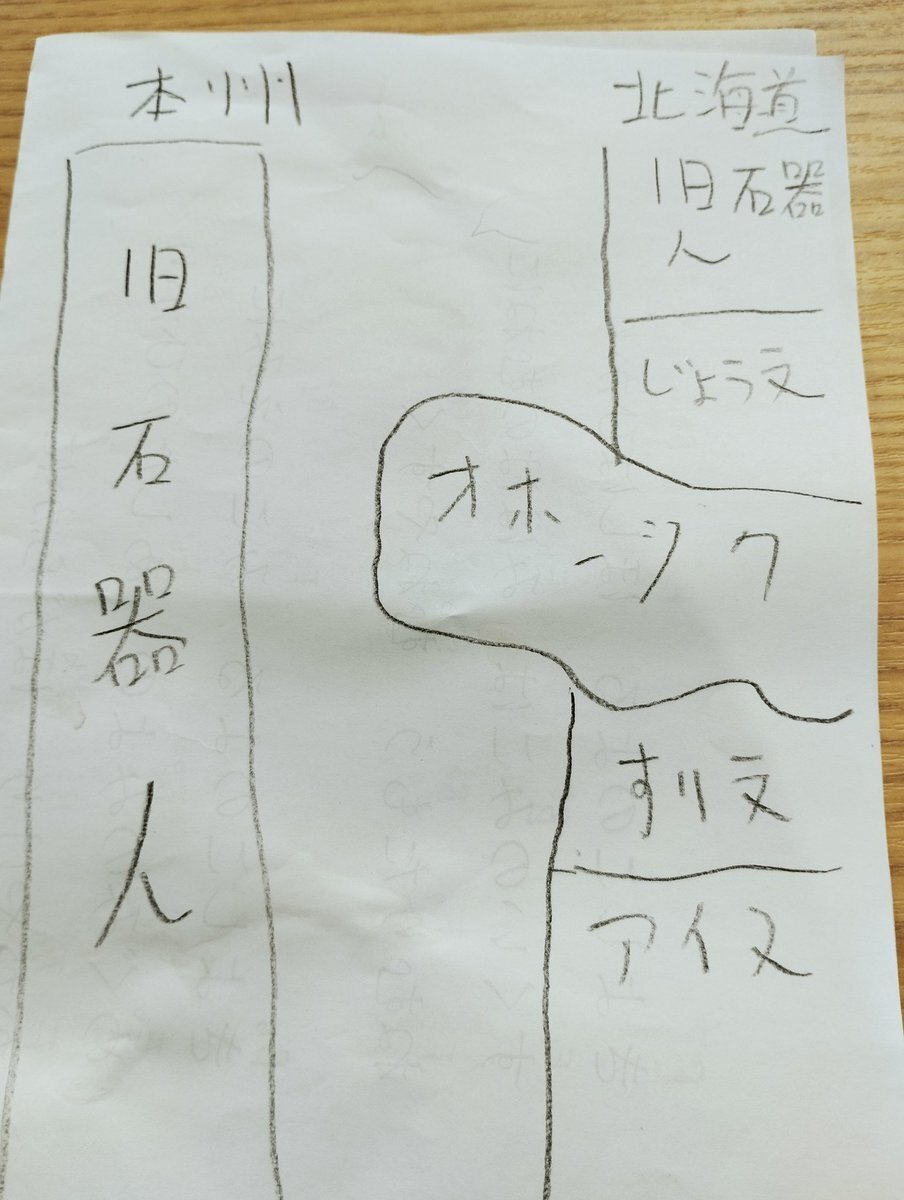 本州
旧石器人
北海道
旧石器
人
じょう文
オホーツク
すり文
アイヌ